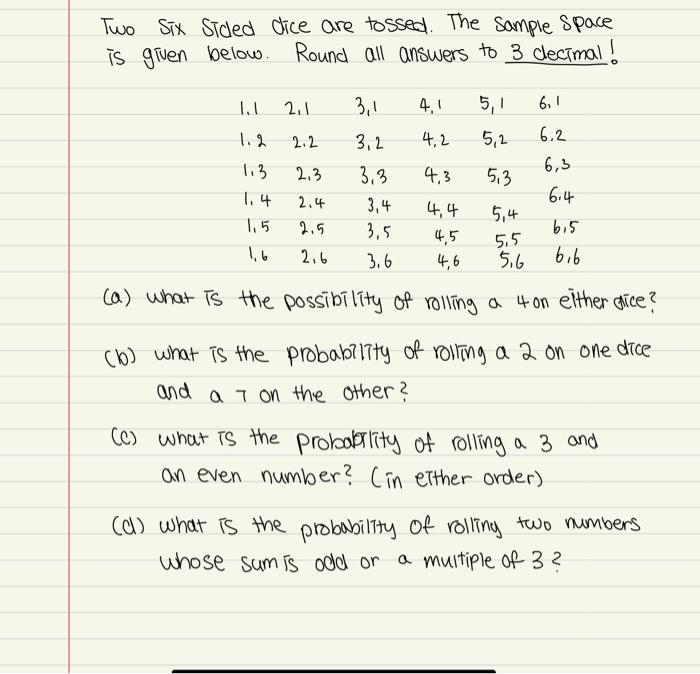 Two Six Sided dice are tossed. The Sample Space
is given below. Round all answers to 3 decimal!
1,1 2,1 3,1 4,1 5,1 6,1
1,2 2,2 3,2 4,2 5,2 6,2
1,3 2,3 3,3 4,3 5,3 6,3
1,4 2,4 3,4 4,4 5,4 6,4
1,5 2,5 3,5 4,5 5,5 6,5
1,6 2,6 3,6 4,6 5,6 6,6
(a) what is the possibility of rolling a 4 on either dice?
(b) what is the probability of rolling a 2 on one dice
and a 7 on the other?
(c) what is the probability of rolling a 3 and
an even number? (in either order)
(d) what is the probability of rolling two numbers
whose sum is odd or a multiple of 3?